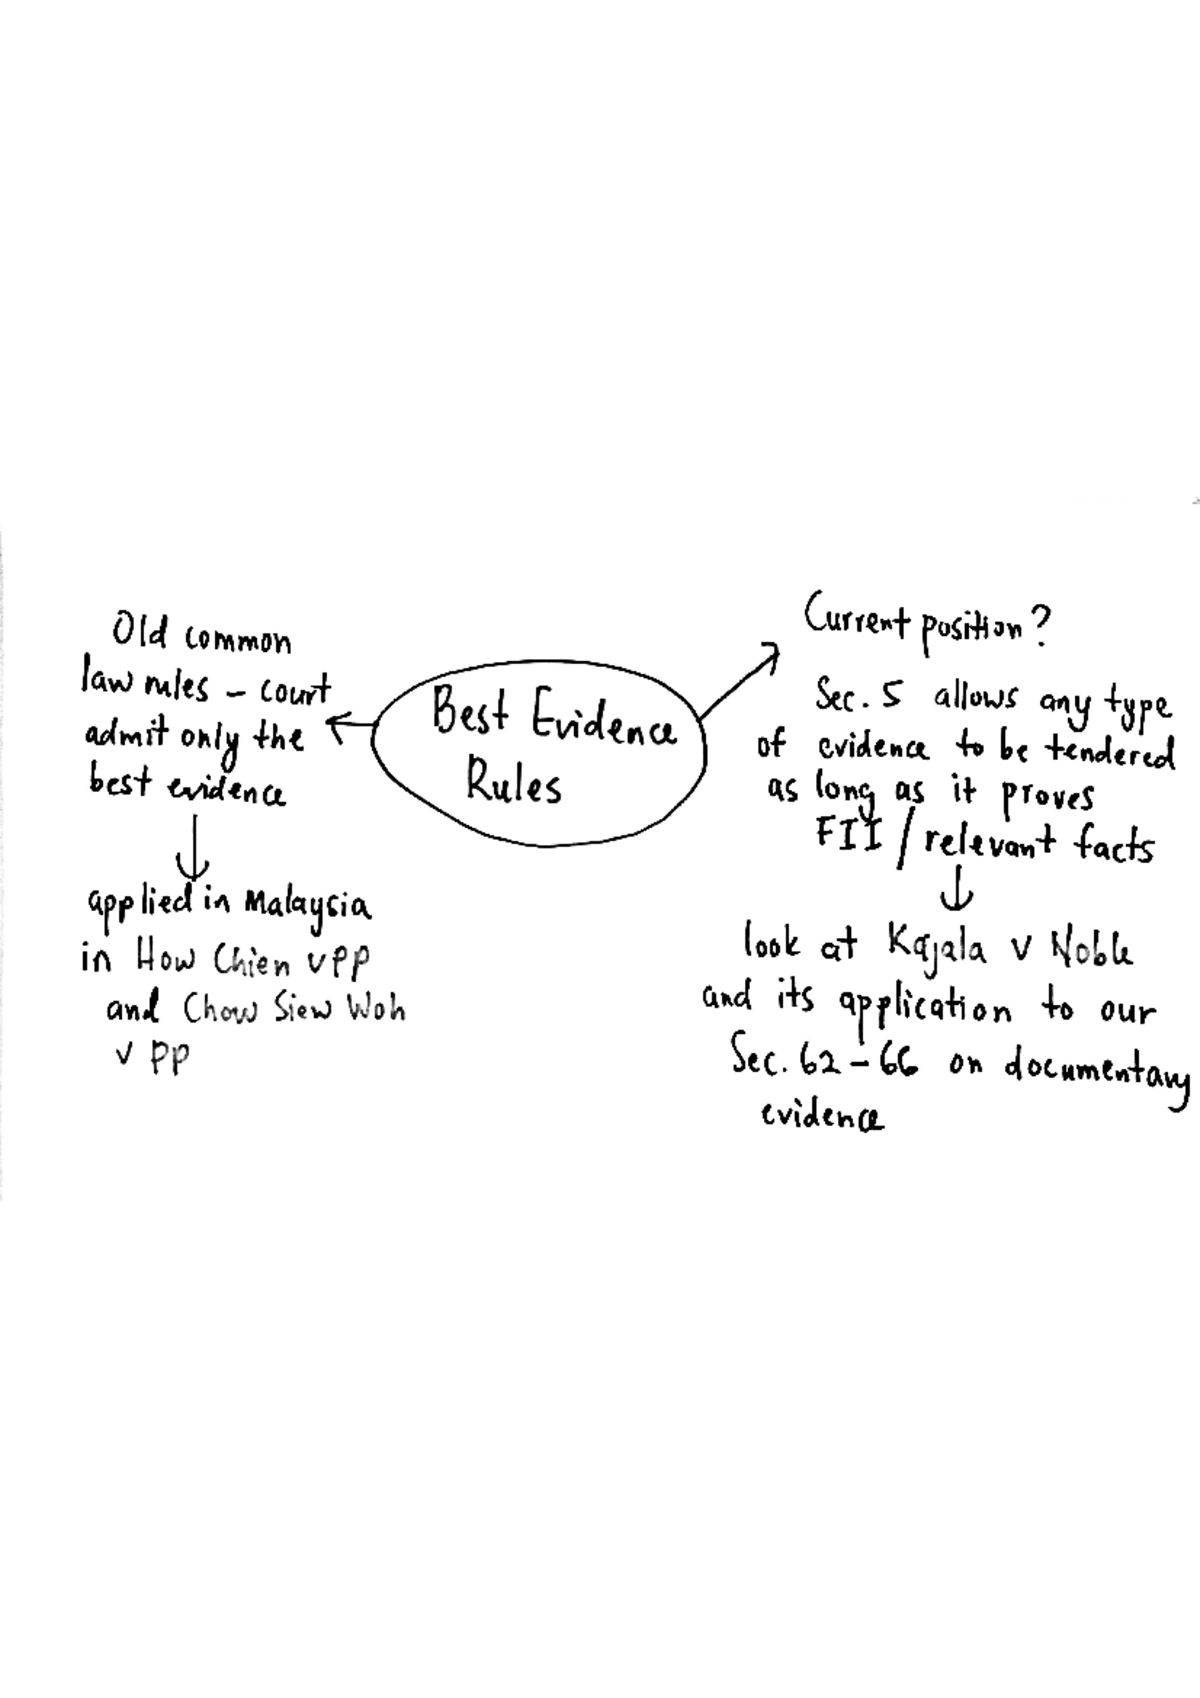 Best Evidence
Rules
Old common
law rules – court
admit only the
best evidence
applied in Malaysia
in How Chien v PP
and Chow Siew Woh
v PP
Current position?
Sec. 5 allows any type
of evidence to be tendered
as long as it proves
FII / relevant facts
look at Kajala v Noble
and its application to our
Sec. 62 – 66 on documentary
evidence